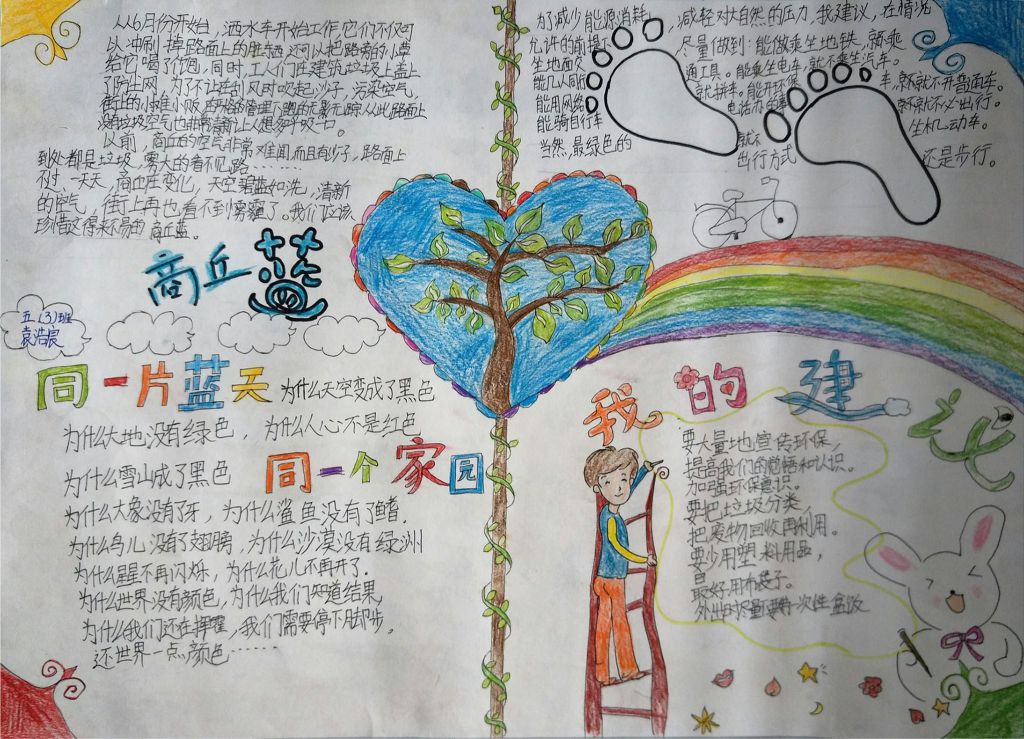 从6月份开始，洒水车开始工作，它们不仅可
以冲刷掉路面上的脏东西还可以把路旁的小草
给它喝了个饱，同时，工人们在建筑垃圾上盖上
了防尘网，为了不让在刮风时吹起沙子，污染空气，
街上的小摊小贩
没有垃圾空气也非常新
以前，商丘的空气非常难闻，而且有沙子，路面上
到处都是垃圾，雾大的看不见路………
不过，一天天，商丘在变化，天空湛蓝如洗，清新
的空气，街上再也看不到雾霾了。我们应该
珍惜这得来不易的商丘蓝。
商丘蓝
五（3）班
袁浩宸
同一片蓝天
为什么天空变成了黑色
为什么大地没有绿色，为什么人心不是红色
为什么雪山成了黑色
同一个家园
为什么大象没有了牙，为什么鲨鱼没有了鳍.
为什么鸟儿没有了翅膀，为什么沙漠没有绿洲
为什么星星不再闪烁，为什么花儿不再开了.
为什么世界没有颜色，为什么我们知道结果
为什么我们还在挥霍，我们需要停下脚步。
还世界一点颜色……
为了减少能源消耗，减轻对大自然的压力，我建议，在情况
允许的前提下，尽量做到：能做乘坐地铁，就乘
坐地面交通工具。能乘坐电车，就不乘坐汽车。
能几人同行就拼车。能开环保车，就就不开普通车。
能用网络电话就不必出行。
能骑自行车就不坐机动车。
当然，最绿色的出行方式还是步行。
我的建议
要大量地宣传环保，
提高我们的觉悟和认识。
加强环保意识。
要把垃圾分类，
把废物回收再利用。
要少用塑料用品，
最好用布袋子。
一次性盒饭